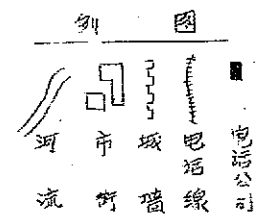 例 图
河流
市街
城墙
电话線
电话公司